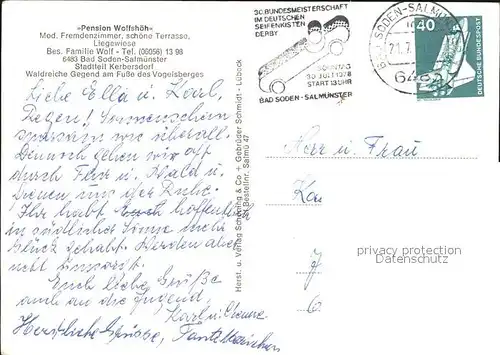 »Pension Wolfshöh«
Mod. Fremdenzimmer, schöne Terrasse,
Liegewiese
Bes. Familie Wolf - Tel. (00056) 13 98
6483 Bad Soden-Salmünster
Stadtteil Kerbersdorf
Waldreiche Gegend am Fuße des Vogelsberges
30. BUNDESMEISTERSCHAFT
IM DEUTSCHEN
SEIFENKISTEN
DERBY
SONNTAG
30. JULI 1978
START 13 UHR
BAD SODEN - SALMÜNSTER
BAD SODEN-SALMÜNSTER
6483
40
DEUTSCHE BUNDESPOST
Liebe Ella u. Karl,
Regen! Sonnenschein
sparsam wie überall.
Dennoch gehen wir oft
durch Flur u. Wald u.
dienen uns der Ruhe.
Ihr habt hoffentlich
in südlicher Sonne mehr
Glück gehabt. Werden aber
nicht
Euch liebe Grüße
auch an die Jugend,
Karl u.
Herzliche Grüsse, Tante
Herst. u. Verlag Schöning & Co + Gebrüder Schmidt - Lübeck
Bestellnr. Salmü 47
Herr u. Frau
Ka
J
6
privacy protection
Datenschutz